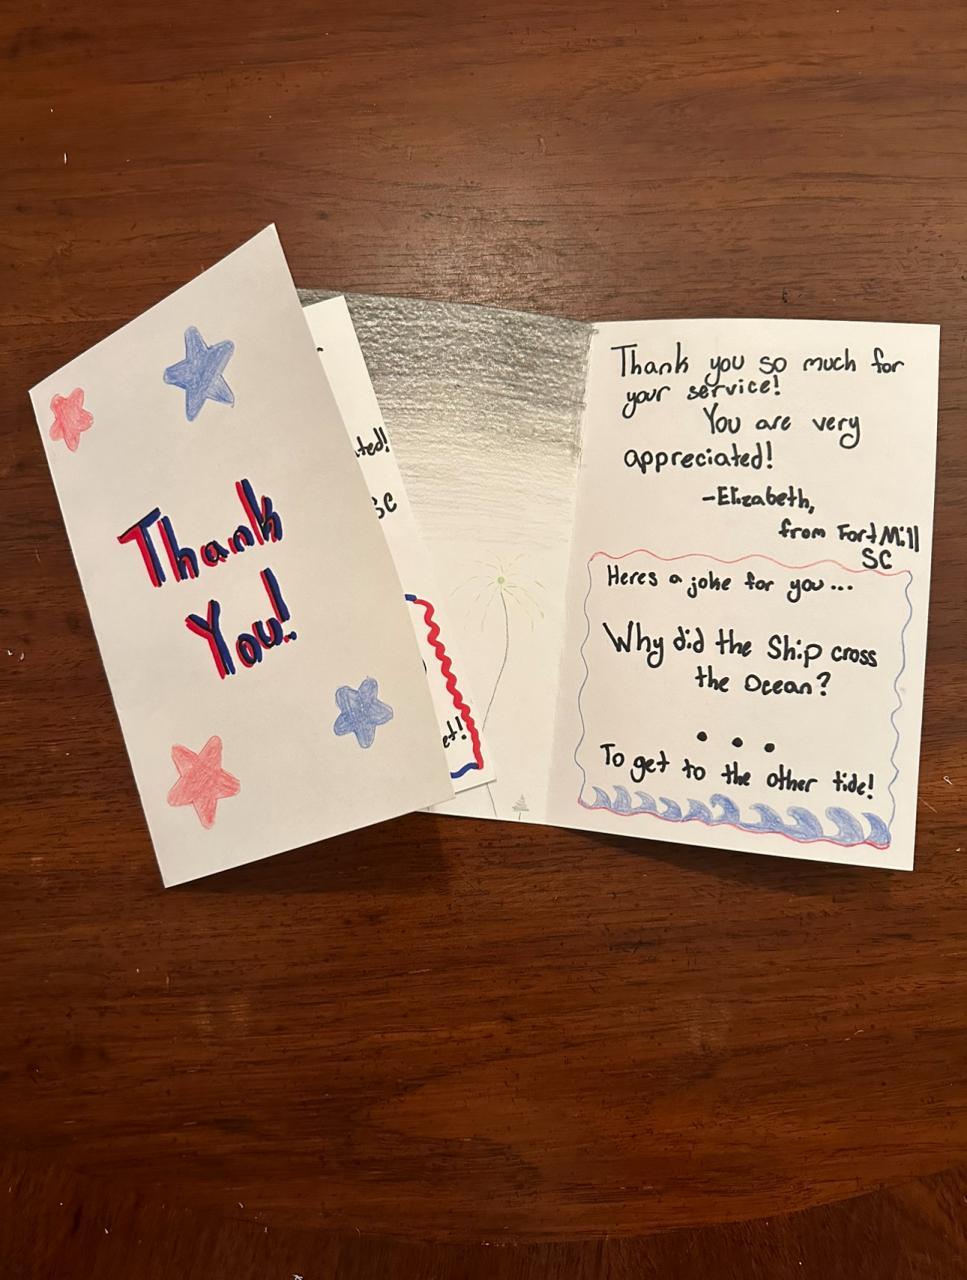 Thank
You!
ated!
SC
et!
Thank you so much for
your service!
You are very
appreciated!
-Elizabeth,
from Fort Mill
SC
Heres a joke for you...
Why did the Ship cross
the Ocean?
...
To get to the other tide!